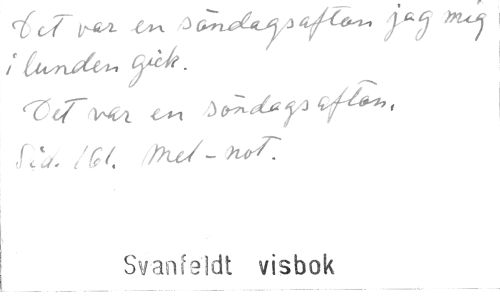 Det var en söndagsafton jag mig
i lunden gick.
Det var en söndagsafton.
Sid. 161. Mel-not.
Svanfeldt visbok